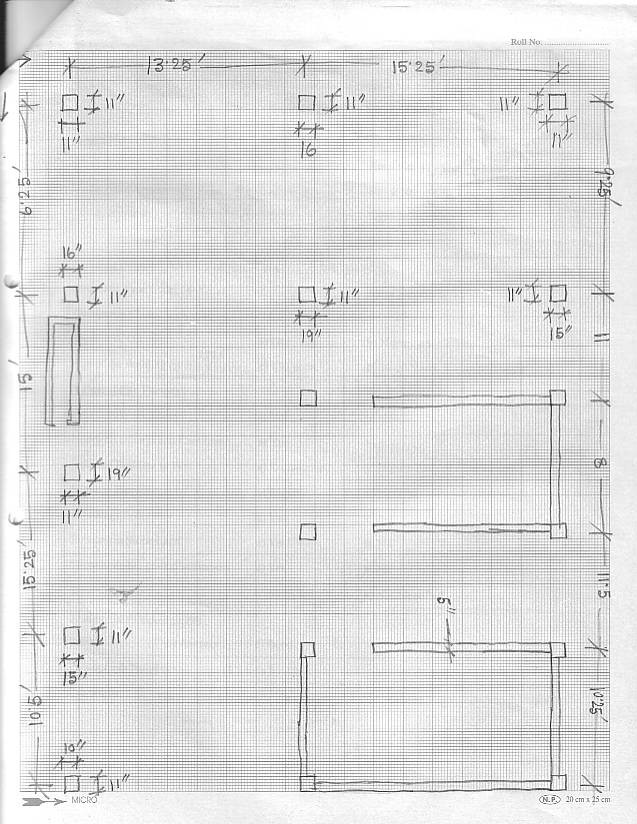 Roll No.
13.25'
15.25'
11"
11"
11"
11"
16
11"
6'25'
9'25'
16"
11"
11"
11"
19"
15"
11
15'
8
19"
11"
15'25'
11'5
5"
11"
15"
10'5'
10'25'
10"
11"
MICRO
N.P. 20 cm x 25 cm